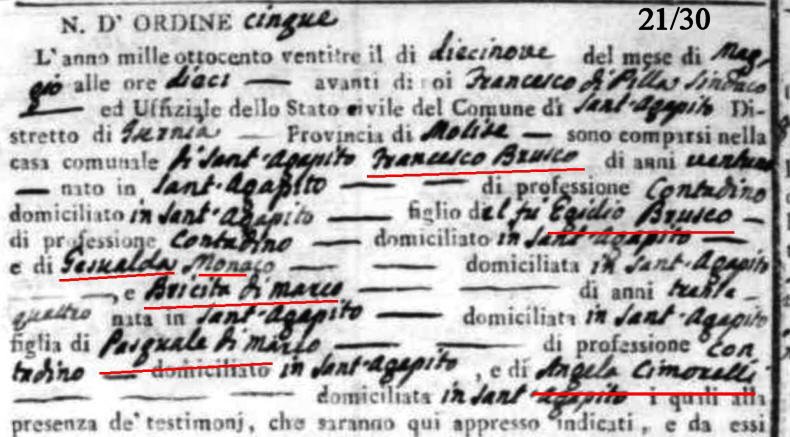 21/30
N. D' ORDINE cinque
L'anno mille ottocento ventitre il di diecinove del mese di Mag
gio alle ore dieci — avanti di noi Francesco di Pilla Sindaco
— ed Uffiziale dello Stato civile del Comune di Sant-Agapito Di-
stretto di Isernia — Provincia di Molise — sono comparsi nella
casa comunale di Sant-Agapito Francesco Brusco di anni ventuno
— nato in Sant-Agapito — — di professione Contadino
domiciliato in Sant-Agapito — figlio del fu Egidio Brusco —
di professione Contadino — domiciliato in Sant-Agapito —
e di Gesualda Monaco — — domiciliata in Sant-Agapito
— , e Bricita di marco — — di anni trenta -
quattro nata in Sant-Agapito — domiciliata in Sant-Agapito
figlia di Pasquale di marco — — di professione Con
tadino — domiciliato in Sant-Agapito , e di Angela Cimorelli
— — — domiciliata in Sant Agapito i quali alla
presenza de' testimonj, che saranno qui appresso indicati, e da essi